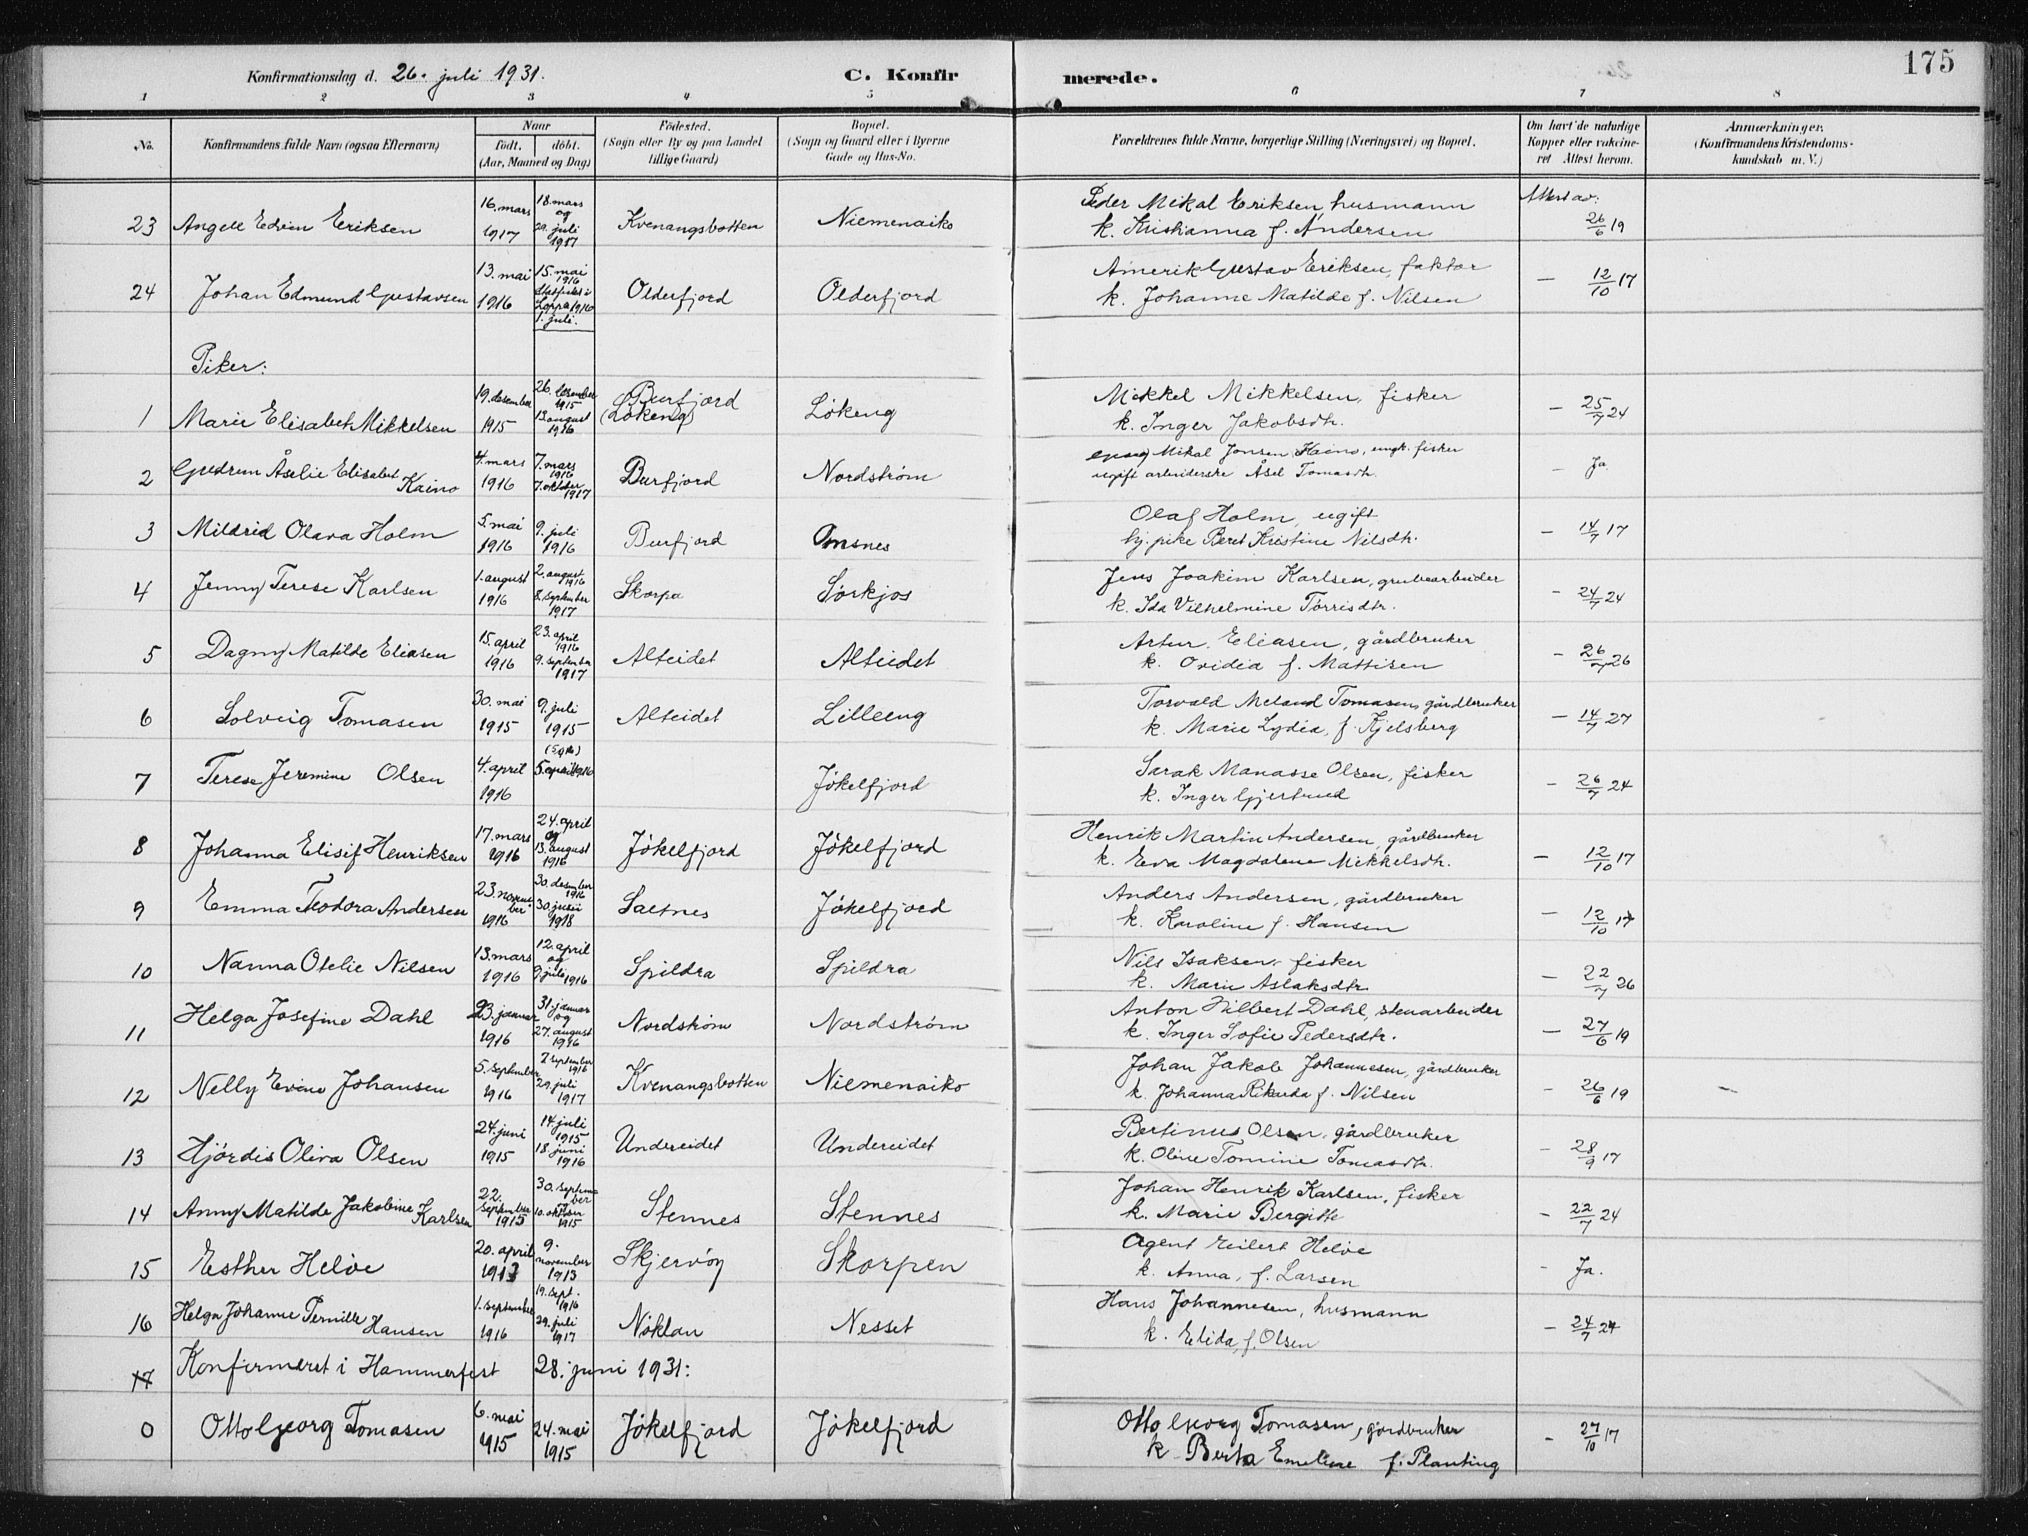 175
Konfirmationsdag d. 26. juli 1931.
C. Konfir merede.
1 2 3 4 5 6 7 8
No.
Konfirmandens fulde Navn (ogsaa Efternavn)
Naar
født. døbt.
(Aar, Maaned og Dag)
Fødested.
(Sogn eller By og paa Landet
tillige Gaard)
Bopæl.
(Sogn og Gaard eller i Byerne
Gade og Hus-No.
Forældrenes fulde Navne, borgerlige Stilling (Næringsvei) og Bopæl.
Om havt de naturlige
Kopper eller vakcine-
ret Attest herom.
Anmærkninger.
(Konfirmandens Kristendoms-
kundskab m. V.)
23 Angell Edvin Eriksen 16. mars 1917 18. mars og 29. juli 1917 Kvenangsbotten Niemenaiko Peder Mikal Eriksen, husmann Attest av: 26/6 19
k. Kristianna f. Andersen
24 Johan Edmund Gustavsen 13. mai 1916 15. mai 1916 Stadfestet i Loppa 1916 1. juli. Olderfjord Olderfjord Amerik Gustav Eriksen, faktor — 12/10 17
k. Johanne Matilde f. Nilsen
Piker:
1 Marie Elisabet Mikkelsen 19. desember 1915 26. desember 1915 13. august 1916 Burfjord (Løkeng) Løkeng Mikkel Mikkelsen, fisker — 25/7 24
k. Inger Jakobsdtr.
2 Gudrun Åselie Elisabet Kaino 4. mars 1916 7. mars 1916 7. oktober 1917 Burfjord Nordstrøm Mikal Jonsen Kaino, ungk. fisker — Ja
ugift arbeiderske Åsel Tomasdtr.
3 Mildrid Olava Holm 5. mai 1916 9. juli 1916 Burfjord Omsnes Olaf Holm, ugift — 14/7 17
hj. pike Beret Kristine Nilsdtr.
4 Jenny Terese Karlsen 1. august 1916 2. august 1916 8. september 1917 Skorpa Sørkjos Jens Joakim Karlsen, grubearbeider — 24/7 24
k. Ida Vilhelmine Torrisdtr.
5 Dagny Matilde Eliasen 15. april 1916 23. april 1916 9. september 1917 Alteidet Alteidet Artur Eliasen, gårdbruker — 26/7 26
k. Ovidia f. Mattisen
6 Solveig Tomasen 30. mai 1915 9. juli 1915 Alteidet Lilleeng Torvald Meland Tomasen, gårdbruker — 14/7 27
k. Marie Lydia, f. Kjelsberg
7 Terese Jeremine Olsen 4. april 1916 5. april 1916 Jøkelfjord Sarak Manasse Olsen, fisker — 26/7 24
k. Inger Gjertrud
8 Johanna Elisif Henriksen 17. mars 1916 24. april og 13. august 1916 Jøkelfjord Jøkelfjord Henrik Martin Andersen, gårdbruker — 12/10 17
k. Eva Magdalene Mikkelsdtr.
9 Emma Teodora Andersen 23. november 1916 30. desember 1916 30. juni 1918 Saltnes Jøkelfjord Anders Andersen, gårdbruker — 12/10 17
k. Karoline f. Hansen
10 Nanna Otelie Nilsen 13. mars 1916 12. april og 9. juli 1916 Spildra Spildra Nils Isaksen, fisker — 22/7 26
k. Marie Aslaksdtr.
11 Helga Josefine Dahl 23. januar 1916 31. januar og 27. august 1916 Nordstrøm Nordstrøm Anton Hilbert Dahl, stenarbeider — 27/6 19
k. Inger Sofie Pedersdtr.
12 Nelly Evine Johansen 5. september 1916 7 september 1916 29. juli 1917 Kvenangsbotten Niemenaiko Johan Jakob Johannesen, gårdbruker — 26/6 19
k. Johanna Rikarda f. Nilsen
13 Hjørdis Oliva Olsen 24. juni 1915 14. juli 1915 18. juni 1916 Undereidet Undereidet Bertinus Olsen, gårdbruker — 28/9 17
k. Oline Tomine Tomasdtr.
14 Anny Matilde Jakobine Karlsen 22. september 1915 30. september 10. oktober 1915 Stennes Stennes Johan Henrik Karlsen, fisker — 22/7 24
k. Marie Bergitte
15 Esther Helve 20. april 1913 9. november 1913 Skjervøy Skorpen Agent Eilert Helve — Ja.
k. Anna, f. Larsen
16 Helga Johanne Pernille Hansen 1. september 1916 19. sept. 1916 29. juli 1917 Nøklan Nesset Hans Johannesen, husmann — 24/7 24
k. Elida, f. Olsen
17 Konfirmeret i Hammerfest 28. juni 1931:
0 Otto Georg Tomasen 6. mai 1915 24. mai 1915 Jøkelfjord Jøkelfjord Otto Georg Tomasen, gårdbruker — 27/10 17
k Berta Emeline f. Planting